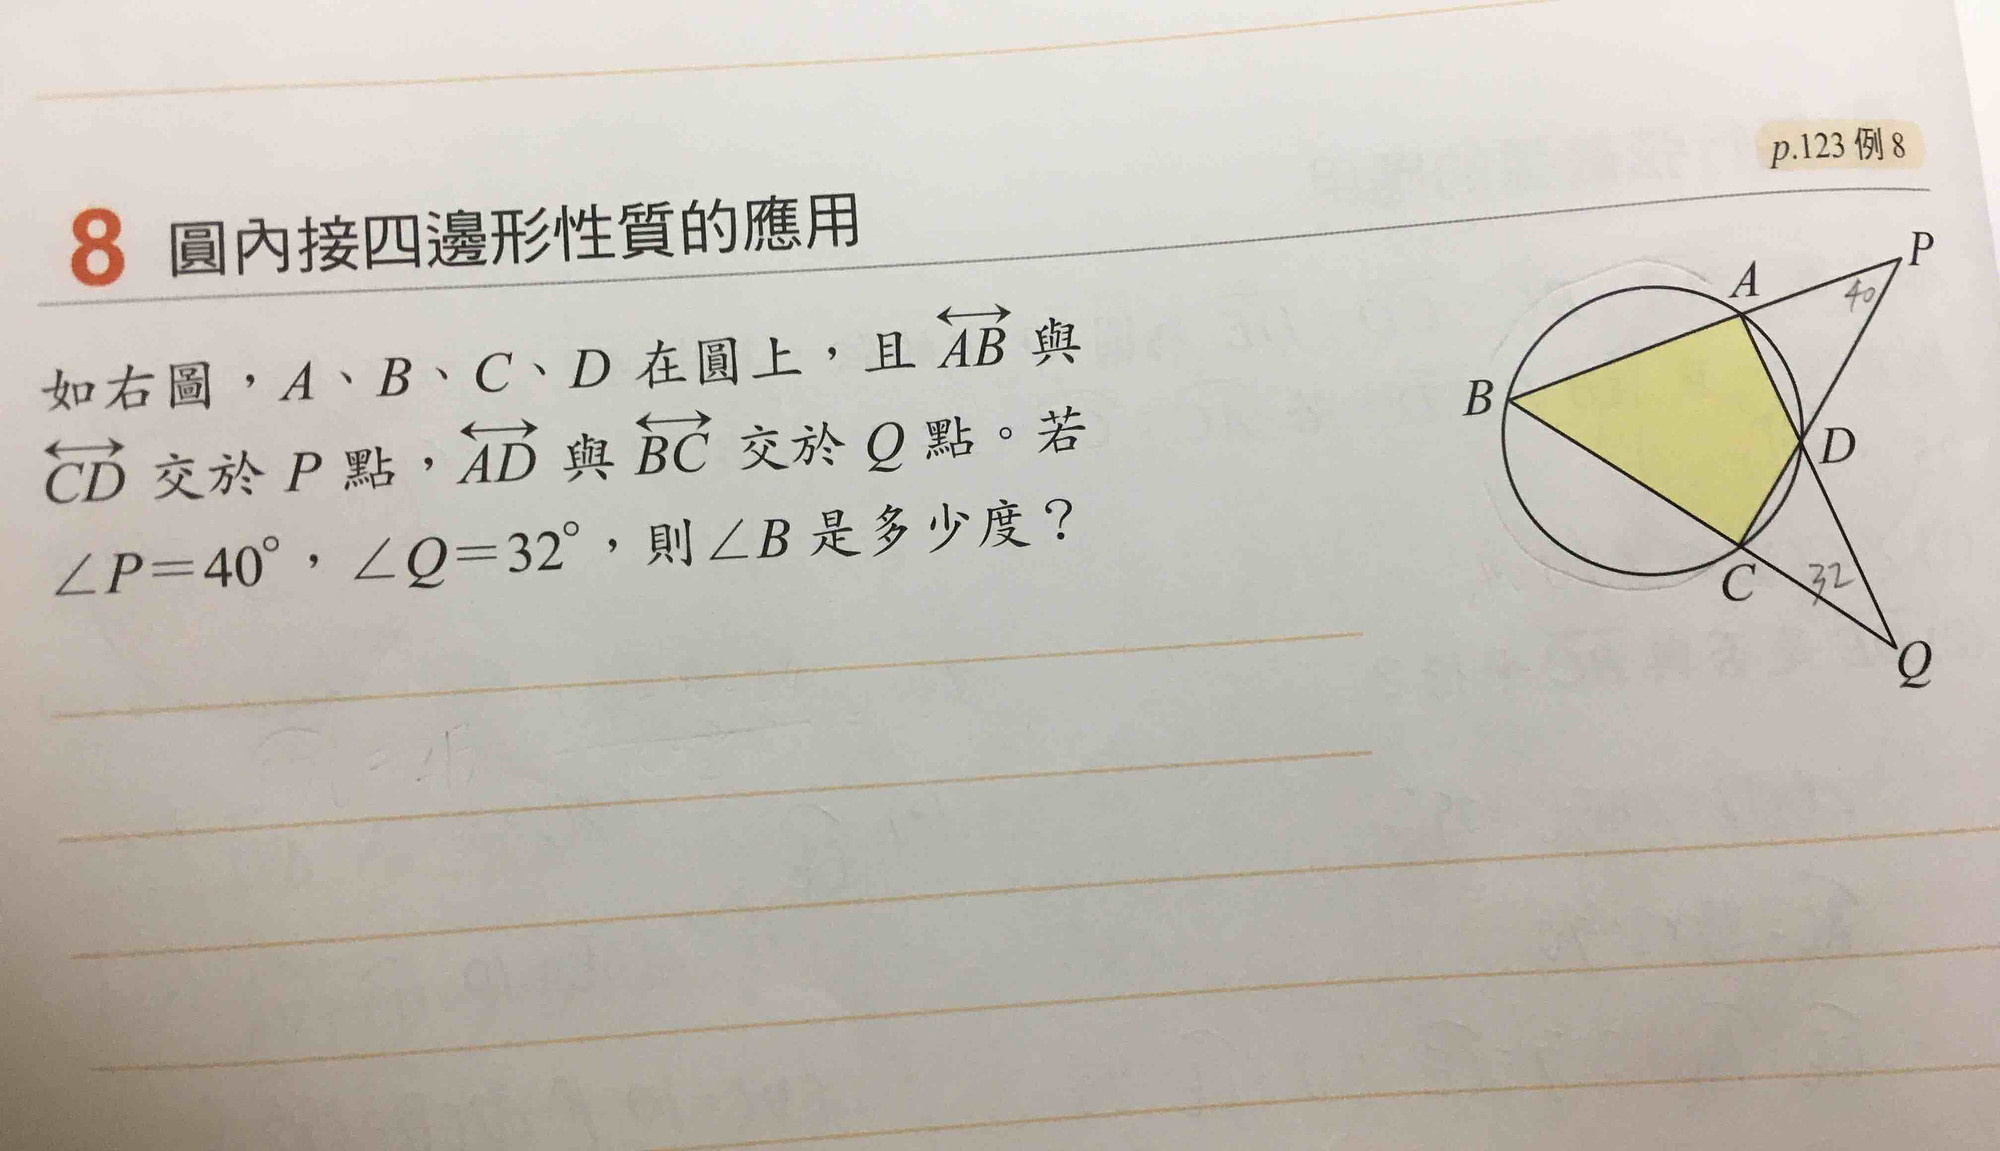 p.123 例 8
8 圓內接四邊形性質的應用
如右圖，A、B、C、D 在圓上，且 AB 與
CD 交於 P 點，AD 與 BC 交於 Q 點。若
∠P=40°，∠Q=32°，則∠B 是多少度？
P
A
40
B
D
C
32
Q